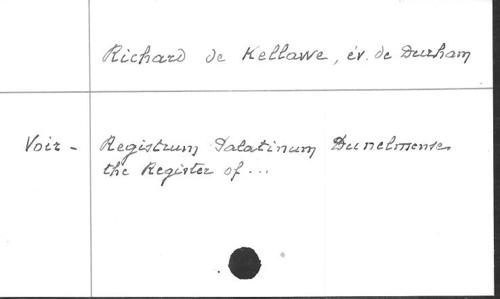 Richard de Kellawe, év. de Durham
Voir - Registrum Palatinum Dunelmense
the Register of ...